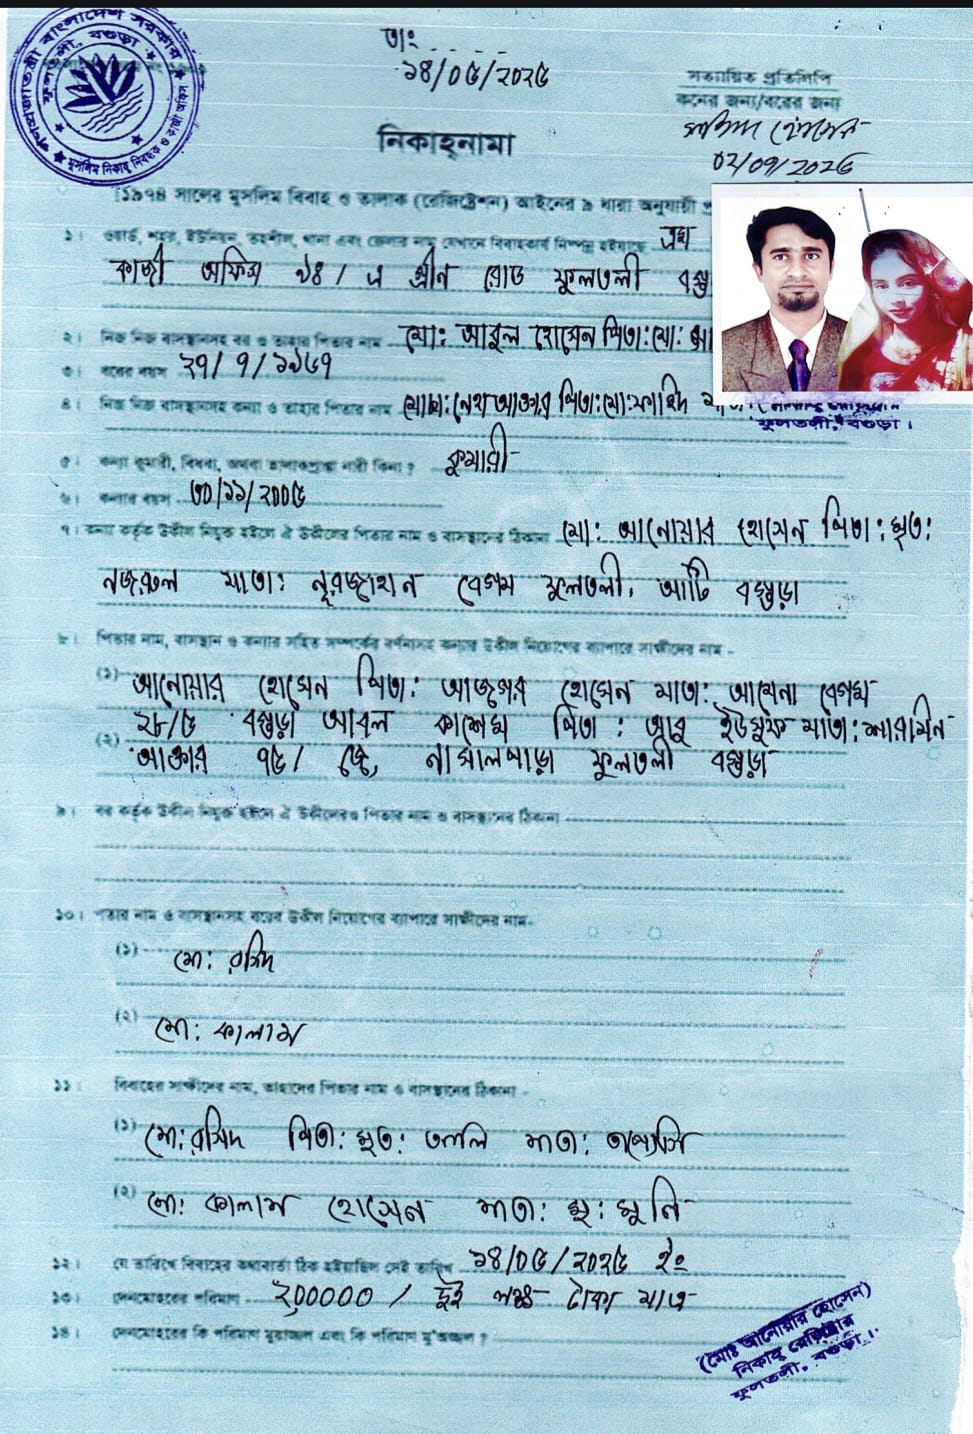 গণপ্রজাতন্ত্রী বাংলাদেশ সরকার
ফুলতলী, বগুড়া
মুসলিম নিকাহ্ নিবন্ধক ও কাজী অফিস
তাং
১৪/০৫/২০২৫
সত্যায়িত প্রতিলিপি
কনের জন্য/বরের জন্য
হোসেন
০২/০৭/২০২৫
নিকাহ্‌নামা
[১৯৭৪ সালের মুসলিম বিবাহ ও তালাক (রেজিষ্ট্রেশন) আইনের ৯ ধারা অনুযায়ী
১। ওয়ার্ড, শহর, ইউনিয়ন, তহশীল, থানা এবং জেলার নাম যেখানে বিবাহকার্য নিষ্পন্ন হইয়াছে
কাজী অফিস ৯৪/ এ গ্রীন রোড ফুলতলী
২। নিজ নিজ বাসস্থানসহ বর ও তাহার পিতার নাম মো: আবুল হোসেন পিতা:মো:
৩। বরের বয়স ২৭/ ৭/ ১৯৬৭
৪। নিজ নিজ বাসস্থানসহ কন্যা ও তাহার পিতার নাম মোছা:নেহা আক্তার পিতা:মো:
ফুলতলী, বগুড়া।
৫। কন্যা কুমারী, বিধবা, অথবা তালাকপ্রাপ্ত নারী কিনা? কুমারী
৬। কন্যার বয়স ৩০/১১/২০০৫
৭। কন্যা কর্তৃক উকীল নিযুক্ত হইলে ঐ উকীলের পিতার নাম ও বাসস্থানের ঠিকানা মো: আনোয়ার হোসেন পিতা: মৃত:
নজরুল মাতা: নূরজাহান বেগম ফুলতলী, আটি বগুড়া
৮। পিতার নাম, বাসস্থান ও কন্যার সহিত সম্পর্কের বর্ণনাসহ কন্যার উকীল নিয়োগের ব্যাপারে সাক্ষীদের নাম -
(১) আনোয়ার হোসেন পিতা: আজগর হোসেন মাতা: আমেনা বেগম
২৮/৫ বগুড়া আবুল কাশেম পিতা: আবু ইউসুফ মাতা: শারমিন
(২) আক্তার ৭৫/ জে, নাখালপাড়া ফুলতলী বগুড়া
৯। বর কর্তৃক উকীল নিযুক্ত হইলে ঐ উকীলেরও পিতার নাম ও বাসস্থানের ঠিকানা
১০। পিতার নাম ও বাসস্থানসহ বরের উকীল নিয়োগের ব্যাপারে সাক্ষীদের নাম-
(১) মো: রসিদ
(২) মো: কালাম
১১। বিবাহের সাক্ষীদের নাম, তাহাদের পিতার নাম ও বাসস্থানের ঠিকানা -
(১) মো:রসিদ পিতা: মৃত: মাতা:
(২) মো: কালাম হোসেন মাতা: মৃ: মুনি
১২। যে তারিখে বিবাহের কথাবার্তা ঠিক হইয়াছিল সেই তারিখ ১৪/০৫/২০২৫ ইং
১৩। দেনমোহরের পরিমাণ ২,০০০০০/ দুই লক্ষ টাকা মাত্র
১৪। দেনমোহরের কি পরিমাণ মুয়াজ্জল এবং কি পরিমাণ মু'অজ্জল ?
(মোঃ আনোয়ার হোসেন)
নিকাহ্ রেজিষ্ট্রার
ফুলতলী, বগুড়া।